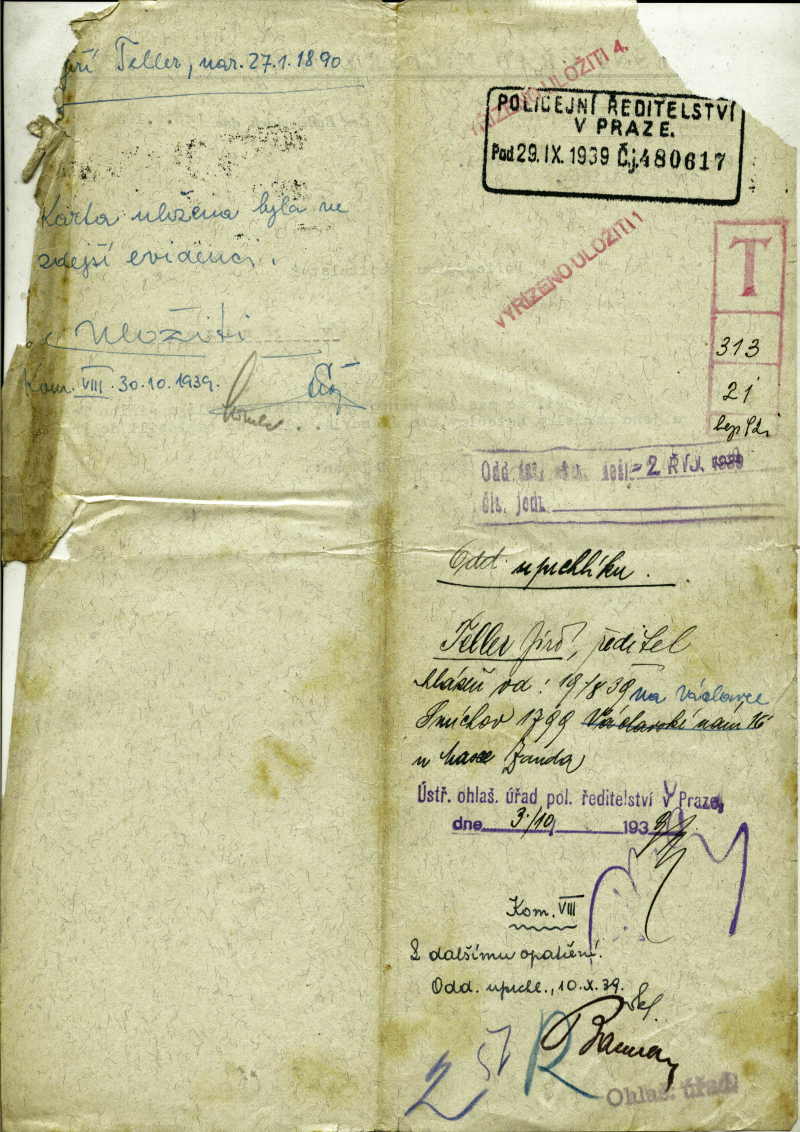 Jiří Teller, nar. 27.1.1890
Karta uložena byla ve
zdejší evidenci.
Uložiti
Kom. VIII. 30.10.1939.
VYŘÍZENO ULOŽITI 4.
POLICEJNÍ ŘEDITELSTVÍ
V PRAZE.
Pod 29. IX. 1939 Čj. 480617
VYŘÍZENO ULOŽITI 1
T
313
21
Odd. - 2. ŘÍJ. 1939
čís. jedn.
Odd. uprchlíku.
Teller Jiří, ředitel
hlášen od: 19/8 39 na Václavce
Smíchov 1799 Václavské nám 16
u Zanda
Ústř. ohlaš. úřad pol. ředitelství v Praze,
dne 3/10 1939
Kom. VIII
K dalšímu opatření.
Odd. uprchl., 10.X.39.
2
R
Ohlaš. úřad.